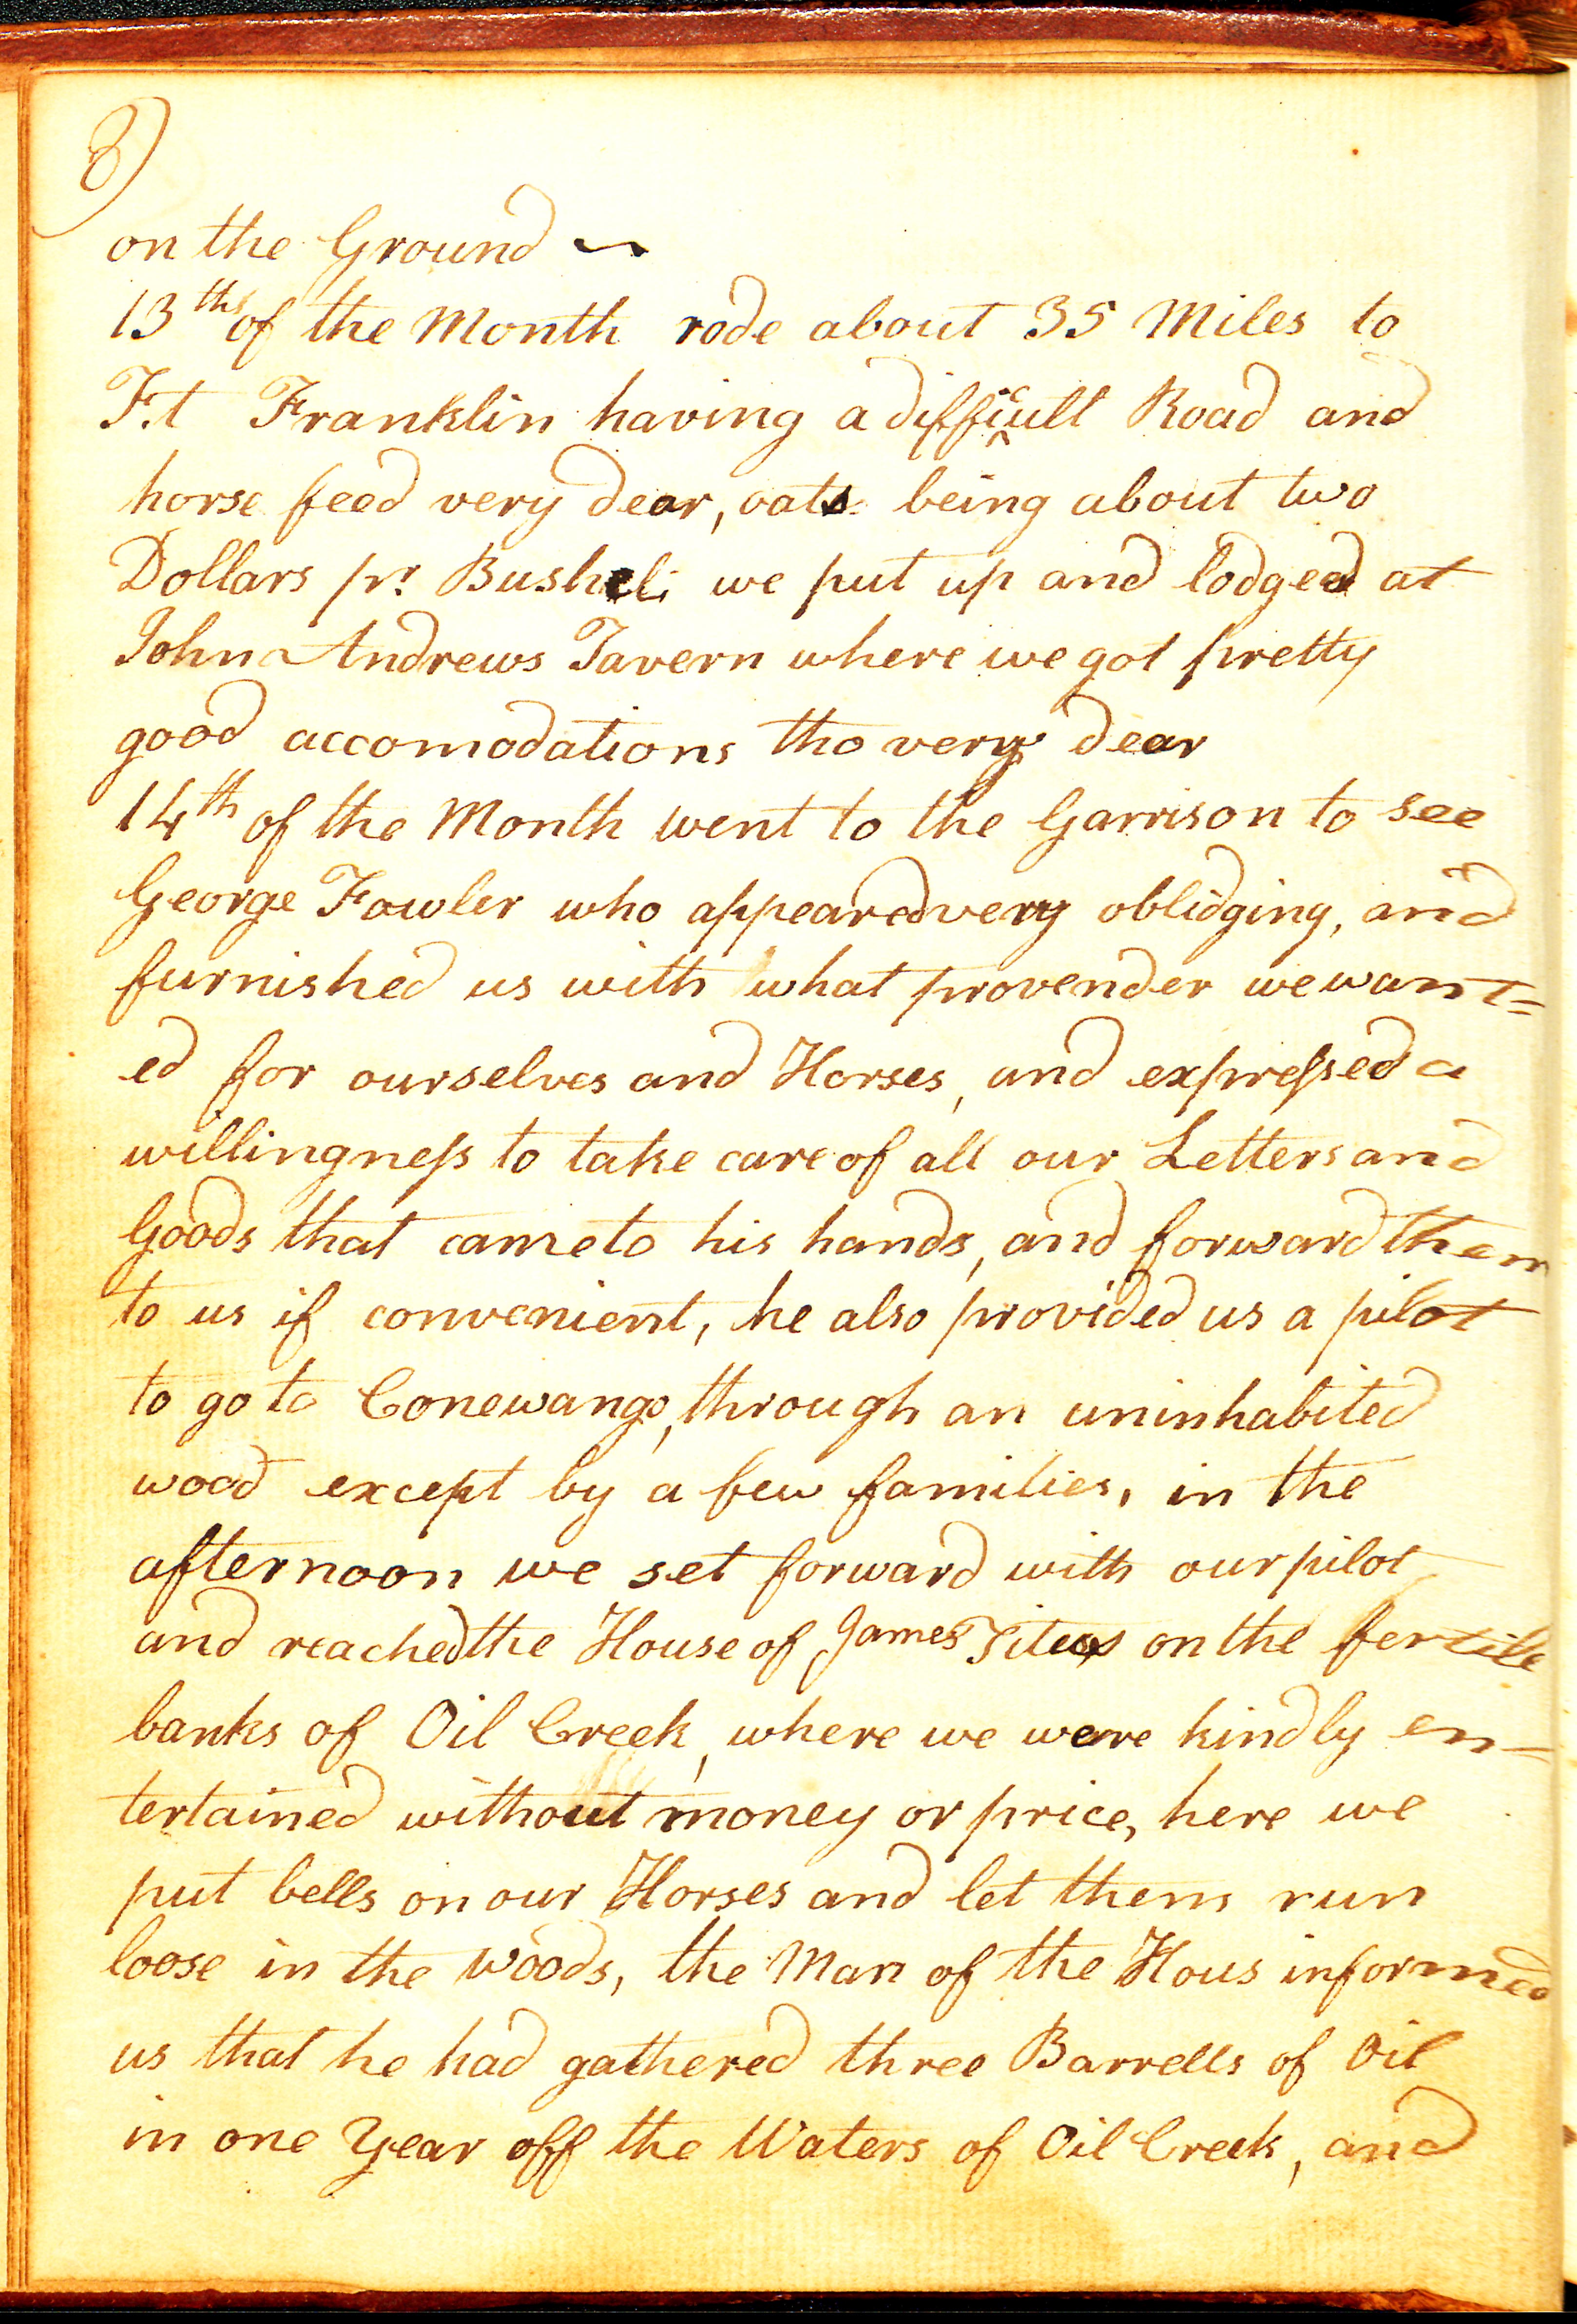 8)
on the Ground ~
13th of the Month rode about 35 Miles to
Ft Franklin having a difficult Road and
horse feed very dear, oats being about two
Dollars pr. Bushel; we put up and lodged at
John Andrews Tavern where we got pretty
good accomodations tho very dear
14th of the Month went to the Garrison to see
George Fowler who appeared very oblidging, and
furnished us with what provender we want=
ed for ourselves and Horses, and expreſsed a
willingneſs to take care of all our Letters and
Goods that came to his hands, and forward them
to us if convenient, he also provided us a pilot
to go to Conewango, through an uninhabited
wood except by a few families, in the
afternoon we set forward with our pilot
and reached the House of James Titus on the fertile
banks of Oil Creek, where we were kindly en=
tertained without money or price, here we
put bells on our Horses and let them run
loose in the woods, the Man of the Hous informed
us that he had gathered three Barrells of Oil
in one Year off the Waters of Oil Creek, and